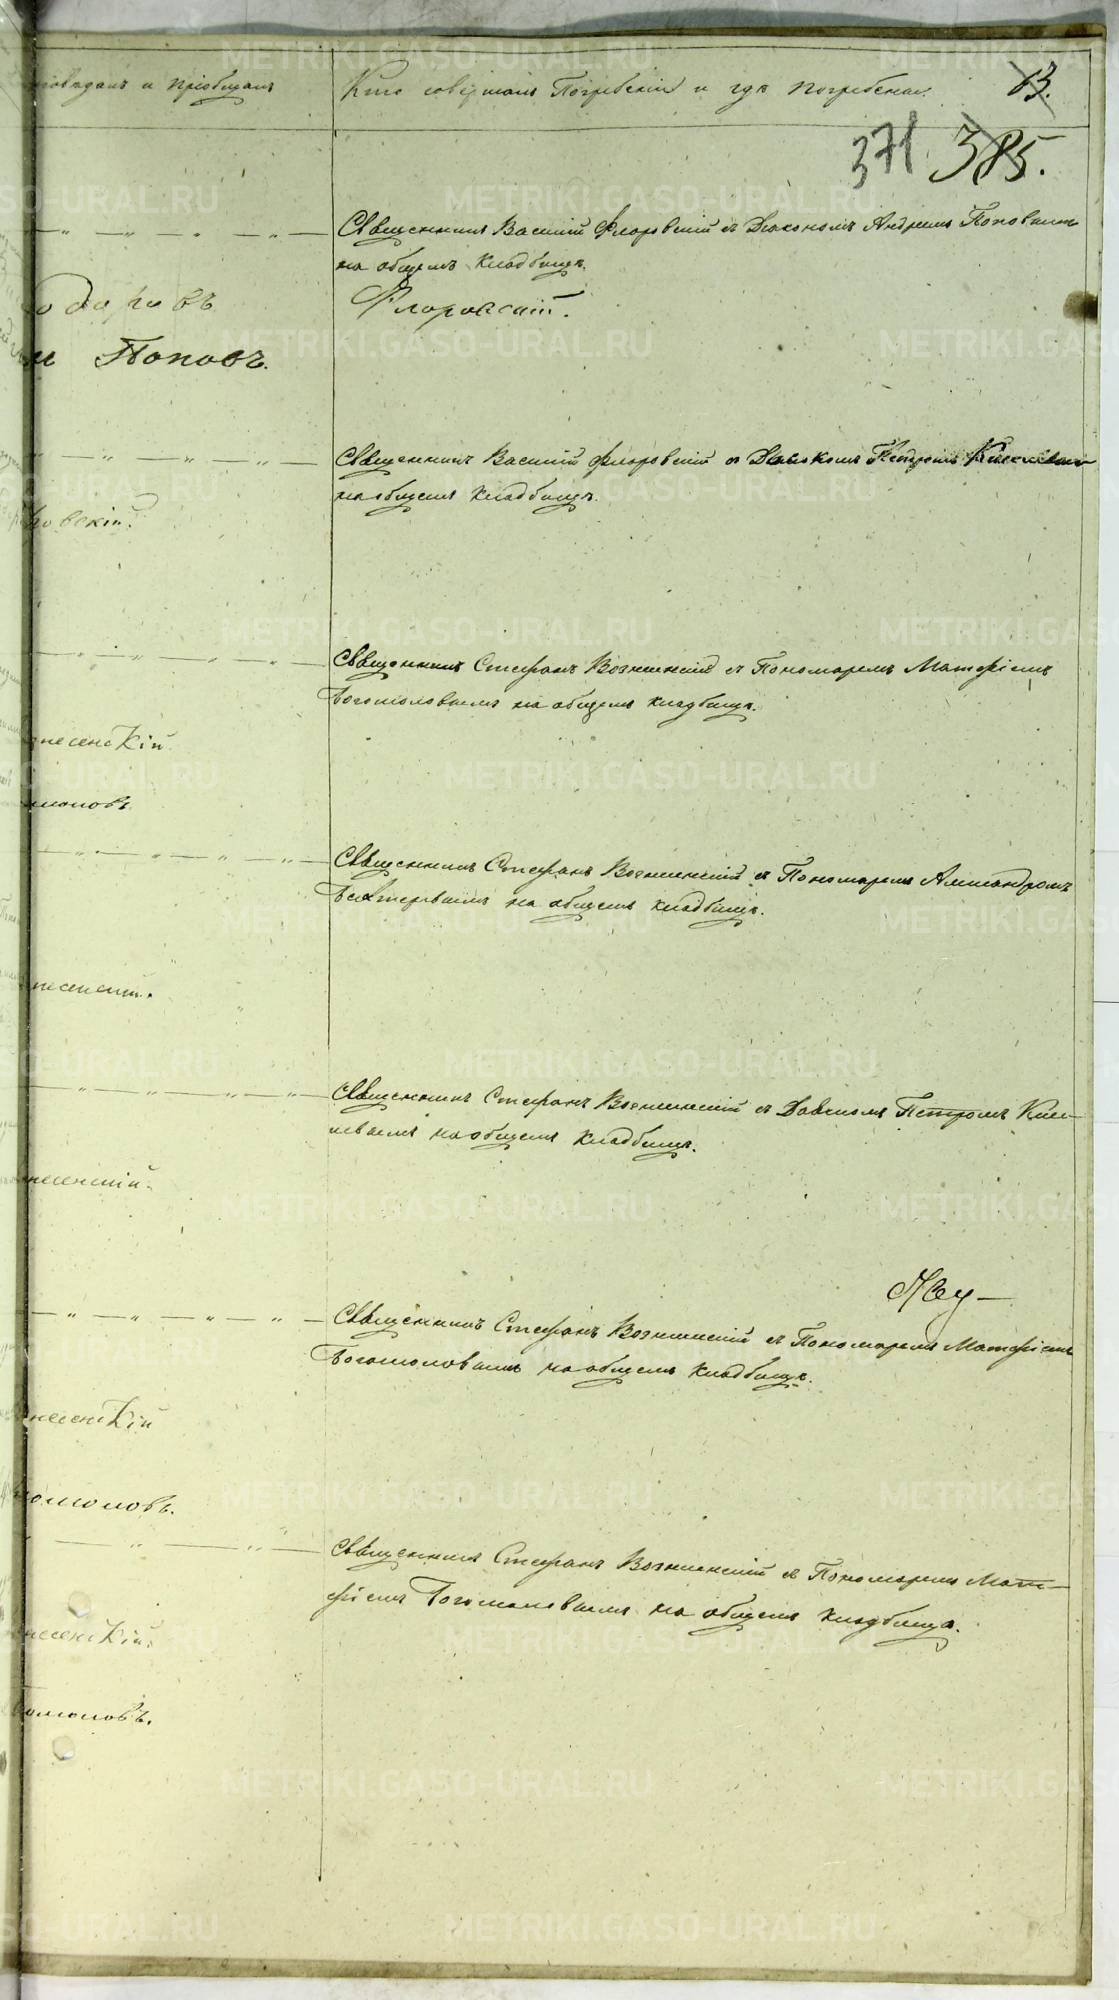 исповѣдалъ и пріобщалъ
Кто совершалъ Погребеніе и гдѣ погребены.
13.
371 385.
Священникъ Василій Флоровскій съ Діакономъ Андреемъ Поповымъ
на общемъ кладбищѣ.
Флоровскій.
одоровъ
и Поповъ.
Священникъ Василій Флоровскій съ Діакономъ Петромъ
на общемъ кладбищѣ.
ровскій.
Священникъ Стефанъ Вознесенскій съ Пономаремъ Матфіемъ
Богомоловымъ на общемъ кладбищѣ.
знесенскій
омоловъ
Священникъ Стефанъ Вознесенскій съ Пономаремъ Александромъ
на общемъ кладбищѣ.
несенскій.
Священникъ Стефанъ Вознесенскій съ Діакономъ Петромъ
на общемъ кладбищѣ.
несенскій.
Священникъ Стефанъ Вознесенскій съ Пономаремъ Матфіемъ
Богомоловымъ на общемъ кладбищѣ.
несенскій
омоловъ.
Священникъ Стефанъ Вознесенскій съ Пономаремъ Мат-
фіемъ Богомоловымъ на общемъ кладбищѣ.
несенскій.
омоловъ.
METRIKI.GASO-URAL.RU